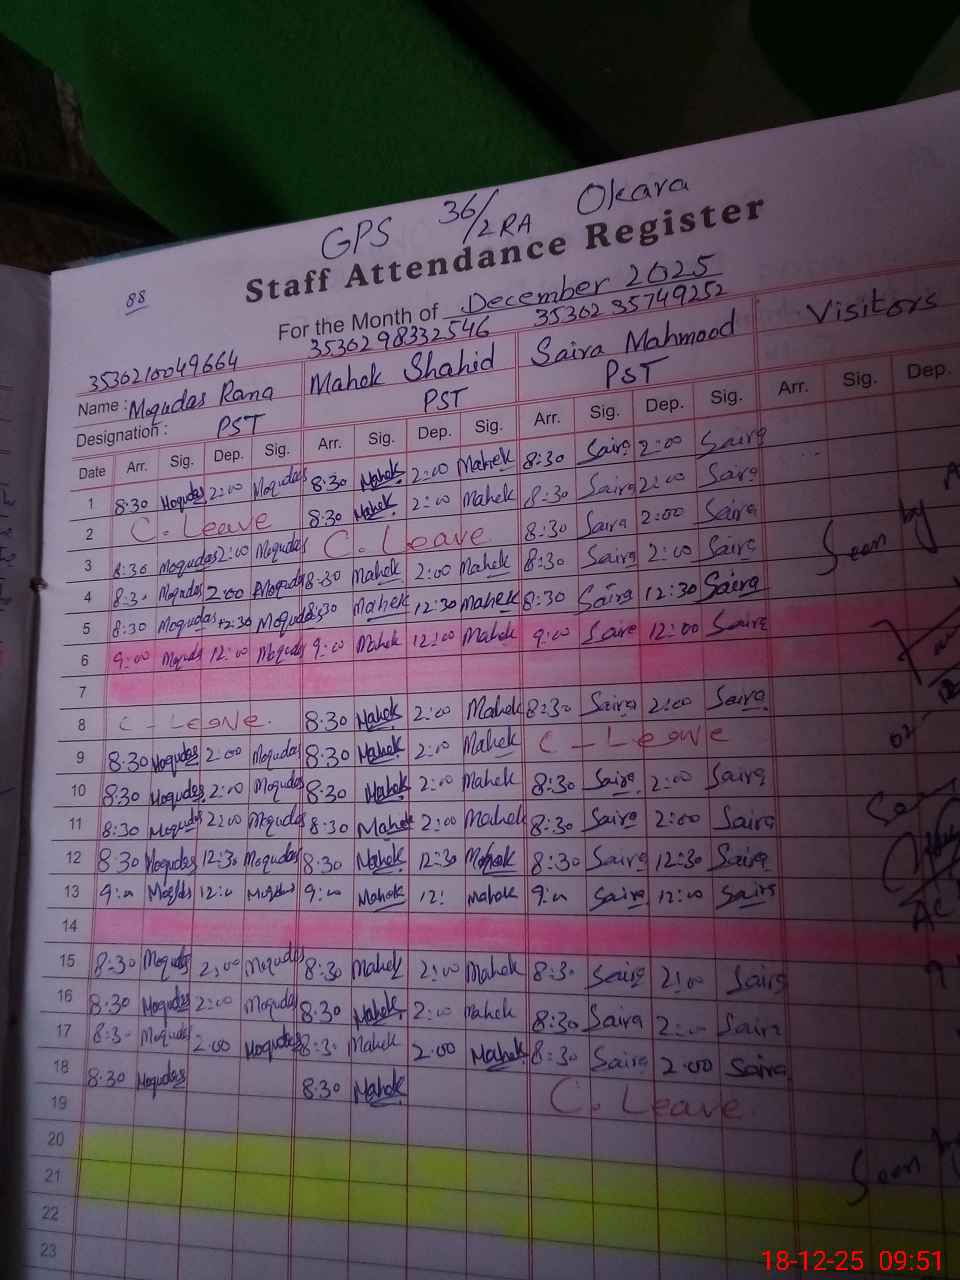 GPS 36/2RA Okara
88
Staff Attendance Register
For the Month of December 2025
3530210049664 3530298332546 3530235749252
Name : Moqudas Rana Mahek Shahid Saira Mahmood Visitors
Designation : PST PST PST
Date Arr. Sig. Dep. Sig. Arr. Sig. Dep. Sig. Arr. Sig. Dep. Sig. Arr. Sig. Dep.
1 8:30 Moqudas 2:00 Moqudas 8:30 Mahek 2:00 Mahek 8:30 Saira 2:00 Saira
2 C. Leave 8:30 Mahek 2:00 Mahek 8:30 Saira 2:00 Saira
3 8:30 Moqudas 2:00 Moqudas C. Leave 8:30 Saira 2:00 Saira Seen by
4 8:30 Moqudas 2:00 Moqudas 8:30 Mahek 2:00 Mahek 8:30 Saira 2:00 Saira
5 8:30 Moqudas 12:30 Moqudas 8:30 Mahek 12:30 Mahek 8:30 Saira 12:30 Saira
6 9:00 Moqudas 12:00 Moqudas 9:00 Mahek 12:00 Mahek 9:00 Saira 12:00 Saira
7
8 C-Leave. 8:30 Mahek 2:00 Mahek 8:30 Saira 2:00 Saira
9 8:30 Moqudas 2:00 Moqudas 8:30 Mahek 2:00 Mahek C-Leave
10 8:30 Moqudas 2:00 Moqudas 8:30 Mahek 2:00 Mahek 8:30 Saira 2:00 Saira
11 8:30 Moqudas 2:00 Moqudas 8:30 Mahek 2:00 Mahek 8:30 Saira 2:00 Saira
12 8:30 Moqudas 12:30 Moqudas 8:30 Mahek 12:30 Mahek 8:30 Saira 12:30 Saira
13 9:00 Moqudas 12:00 Moqudas 9:00 Mahek 12: Mahek 9:00 Saira 12:00 Saira
14
15 8:30 Moqudas 2:00 Moqudas 8:30 Mahek 2:00 Mahek 8:30 Saira 2:00 Saira
16 8:30 Moqudas 2:00 Moqudas 8:30 Mahek 2:00 Mahek 8:30 Saira 2:00 Saira
17 8:30 Moqudas 2:00 Moqudas 8:30 Mahek 2:00 Mahek 8:30 Saira 2:00 Saira
18 8:30 Moqudas 8:30 Mahek C. Leave
19
20
21 Seen
22
23
18-12-25 09:51